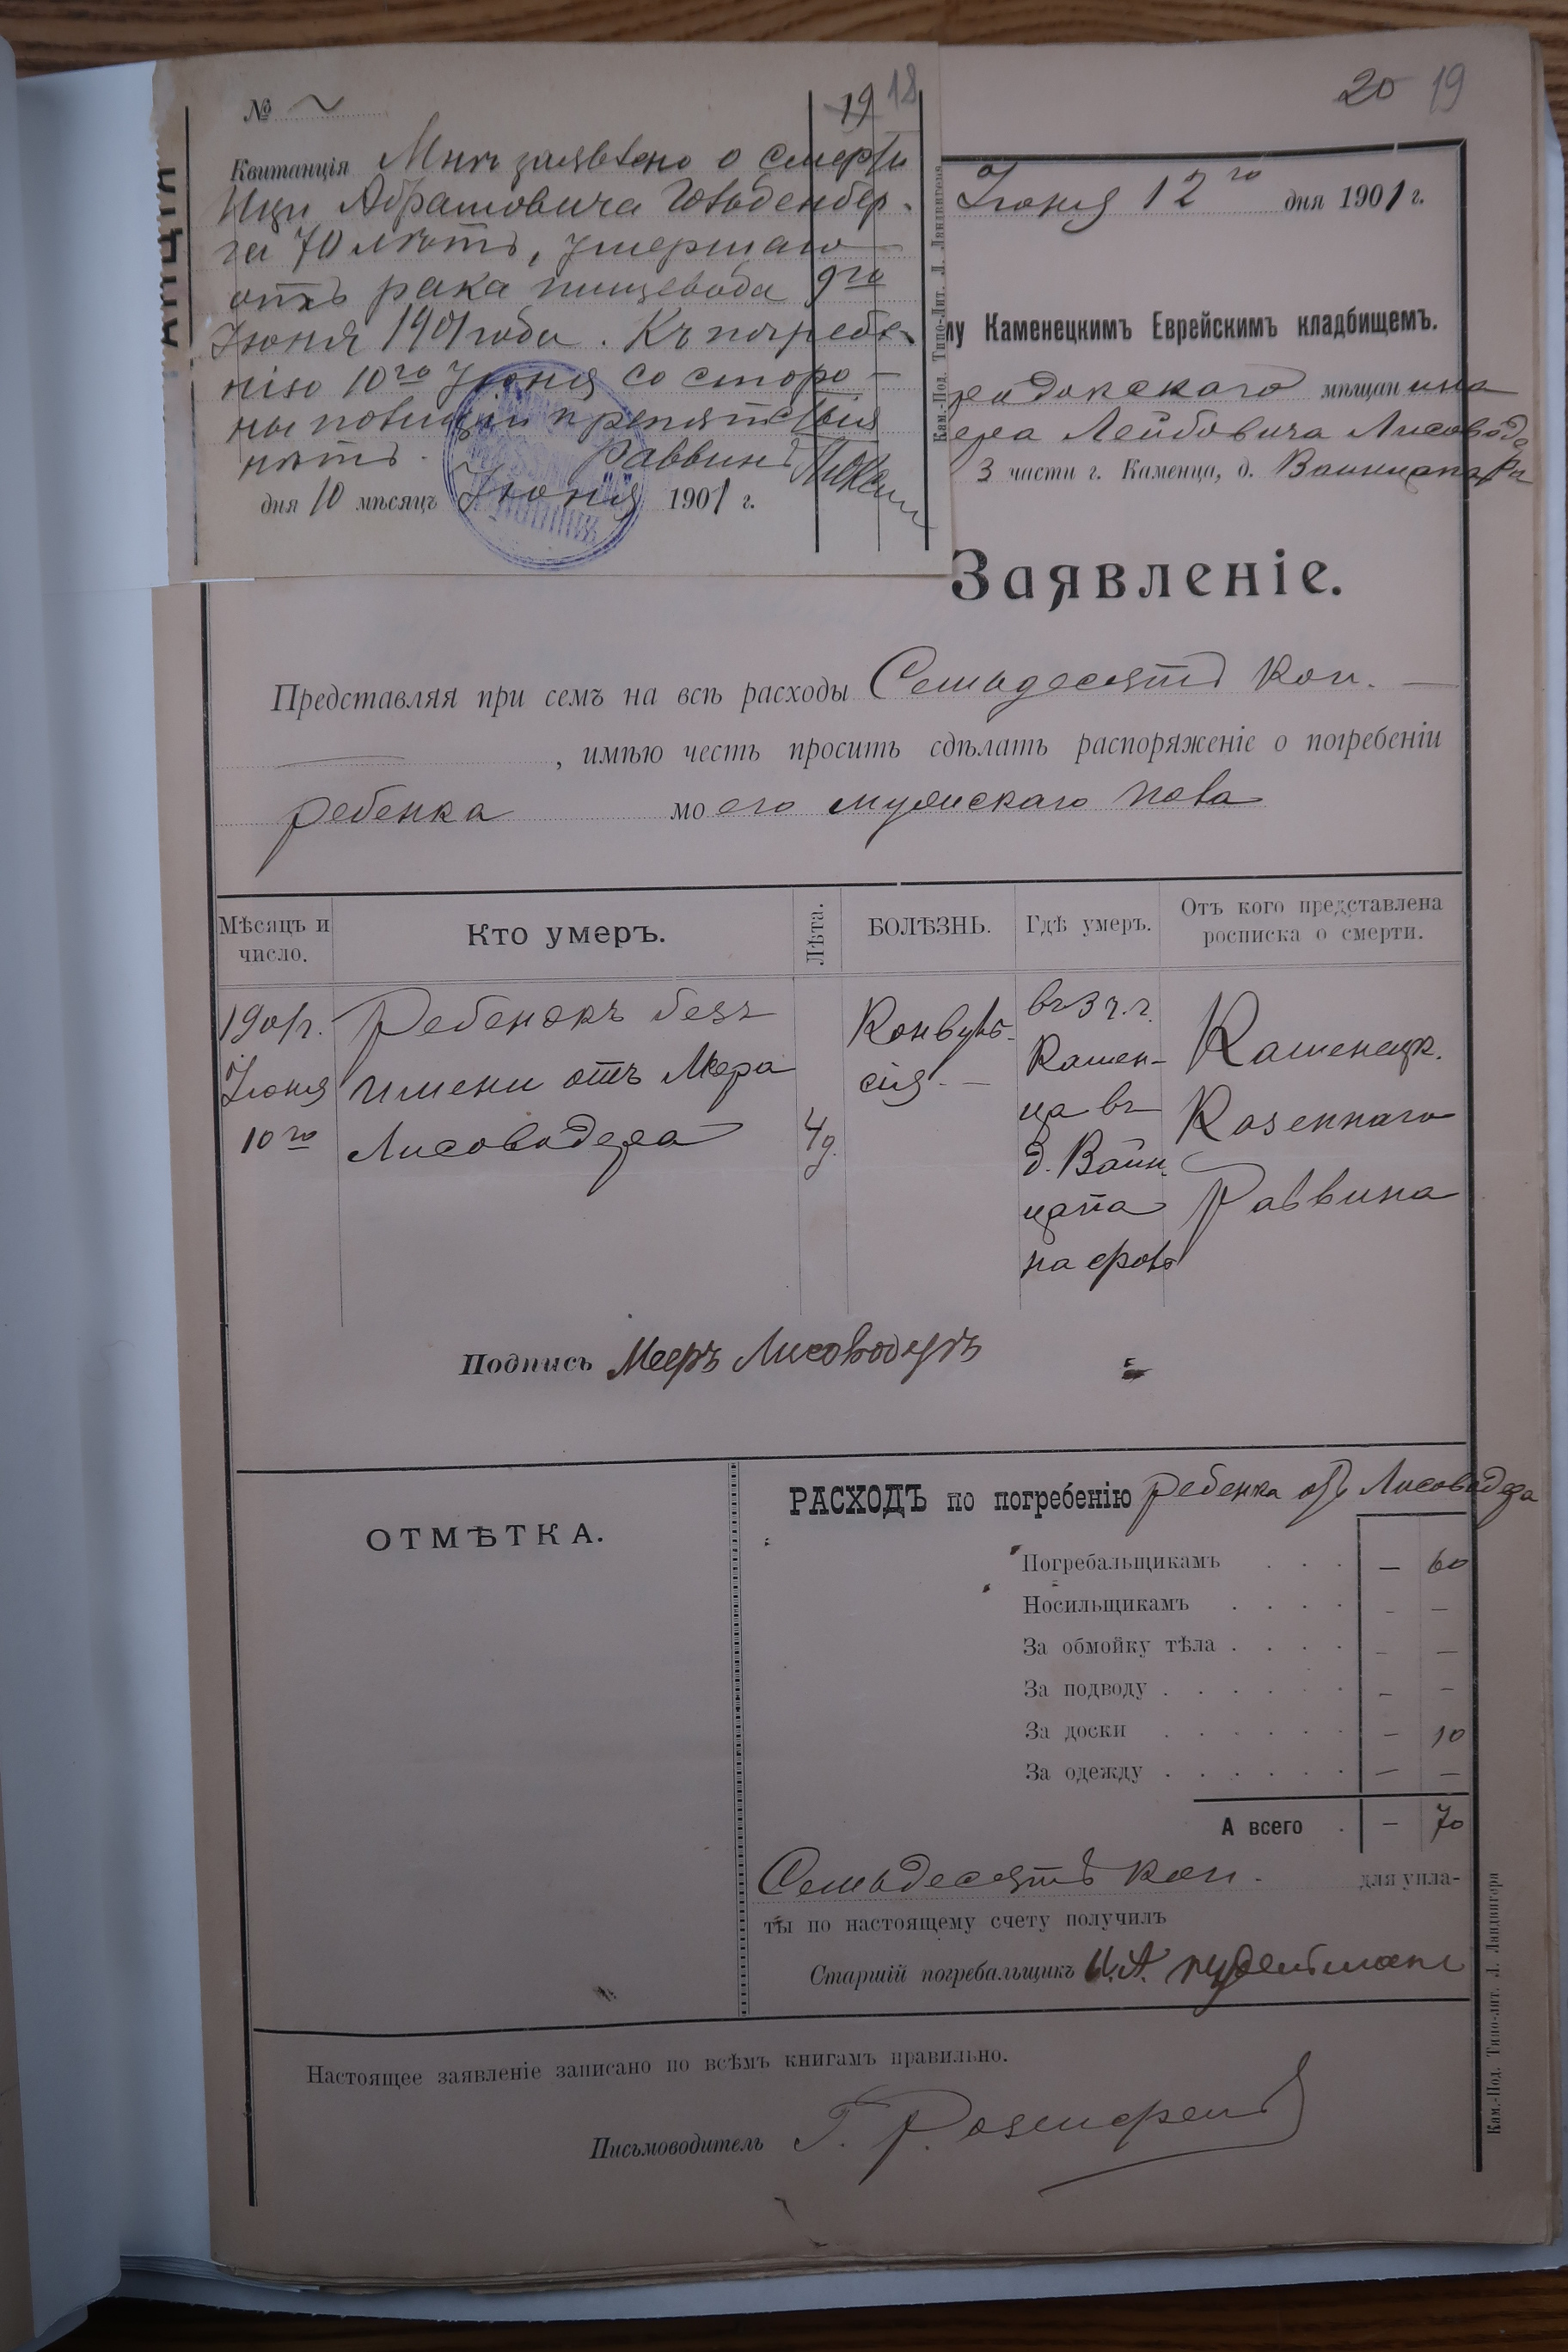 № ~
19 18
Квитанція Мнѣ заявлено о смерти
Ици Абрамовича Гольденбер-
га 70 лѣтъ, умершаго
отъ рака пищевода 9го
Іюня 1901 года. Къ погребе-
нію 10го Іюня со сторо-
ны полиціи препятствія
нѣтъ. Раввинъ
дня 10 мѣсяцъ Іюня 1901 г.
20 19
Іюня 12го дня 1901 г.
му Каменецкимъ Еврейскимъ кладбищемъ.
мѣщанина
ера Лейбовича Лисоводера
3 части г. Каменца, д. Вайнцапа
Кам.-Под. Типо-Лит. Л. Ландвигера
Заявленіе.
Представляя при семъ на всѣ расходы Семьдесятъ коп. —
, имѣю честь просить сдѣлать распоряженіе о погребеніи
ребенка моего мужскаго пола
Мѣсяцъ и число.
Кто умеръ.
Лѣта.
БОЛѢЗНЬ.
Гдѣ умеръ.
Отъ кого представлена росписка о смерти.
1901 г. Іюня 10го
Ребенокъ безъ
имени отъ Меера
Лисоводера
4 д.
Конвуль-
сія. —
въ 3 ч. г.
Камен-
ца въ
д. Вайн-
цапа
Каменецк.
Казеннаго
Раввина
Подпись Мееръ Лисоводеръ
ОТМѢТКА.
РАСХОДЪ по погребенію ребенка отъ Лисоводера
Погребальщикамъ . . . — 60
Носильщикамъ . . . . — —
За обмойку тѣла . . . . — —
За подводу . . . . . . — —
За доски . . . . . . — 10
За одежду . . . . . . — —
А всего . — 70
Семьдесятъ коп. для упла-
ты по настоящему счету получилъ
Старшій погребальщикъ И. А.
Настоящее заявленіе записано по всѣмъ книгамъ правильно.
Письмоводитель Г. Розенфельд
Кам.-Под. Типо-лит. Л. Ландвигера